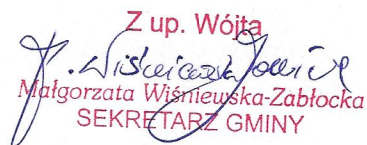 Z up. Wójta
Małgorzata Wiśniewska-Zabłocka
SEKRETARZ GMINY